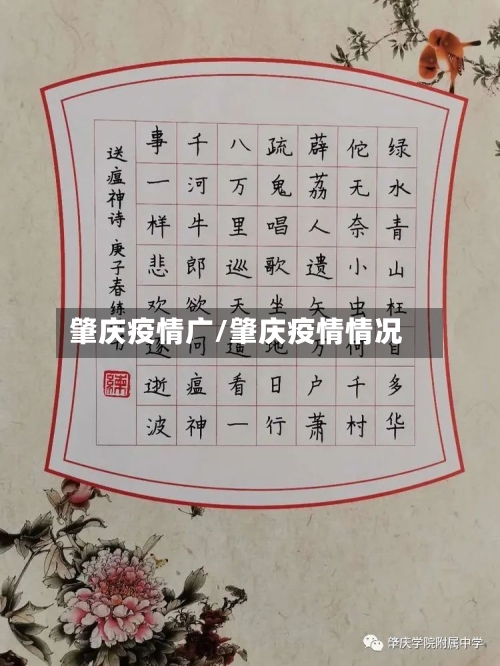 绿水青山枉自多华
佗无奈小虫何千村
薜荔人遗矢万户萧
疏鬼唱歌坐地日行
八万里巡天遥看一
千河牛郎欲问瘟神
事一样悲欢逐逝波
送瘟神诗 庚子春练
肇庆疫情广/肇庆疫情情况
肇庆学院附属中学